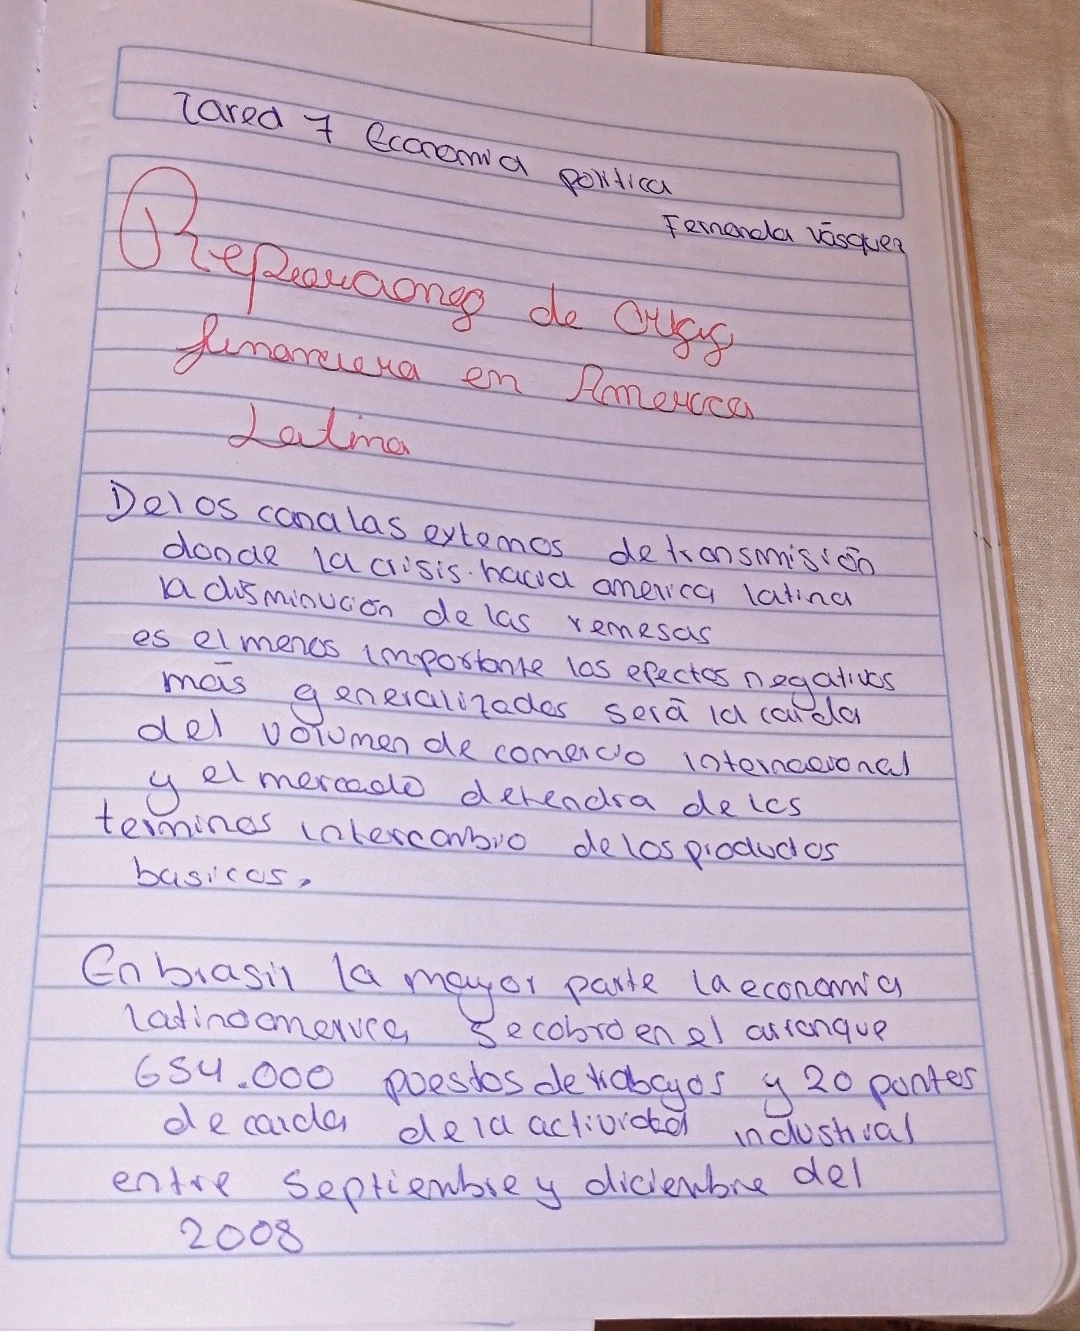 Tarea 7 Economia politica
Fernanda Vásquez
Repercuciones de crisis
financiera en America
Latina
De los canalas externos de transmisión
donde la crisis hacia america latina
la disminución de las remesas
es el menos importante los efectos negativos
más generalizados será la caida
del volumen de comercio internacional
y el mercado detendra de los
terminos intercambio de los productos
basicos,
En brasil la mayor parte la economia
latinoamerica se cobro en el arranque
654.000 poestos de trabayos y 20 pontes
de caida de la actividad industrial
entre Septiembre y diciembre del
2008